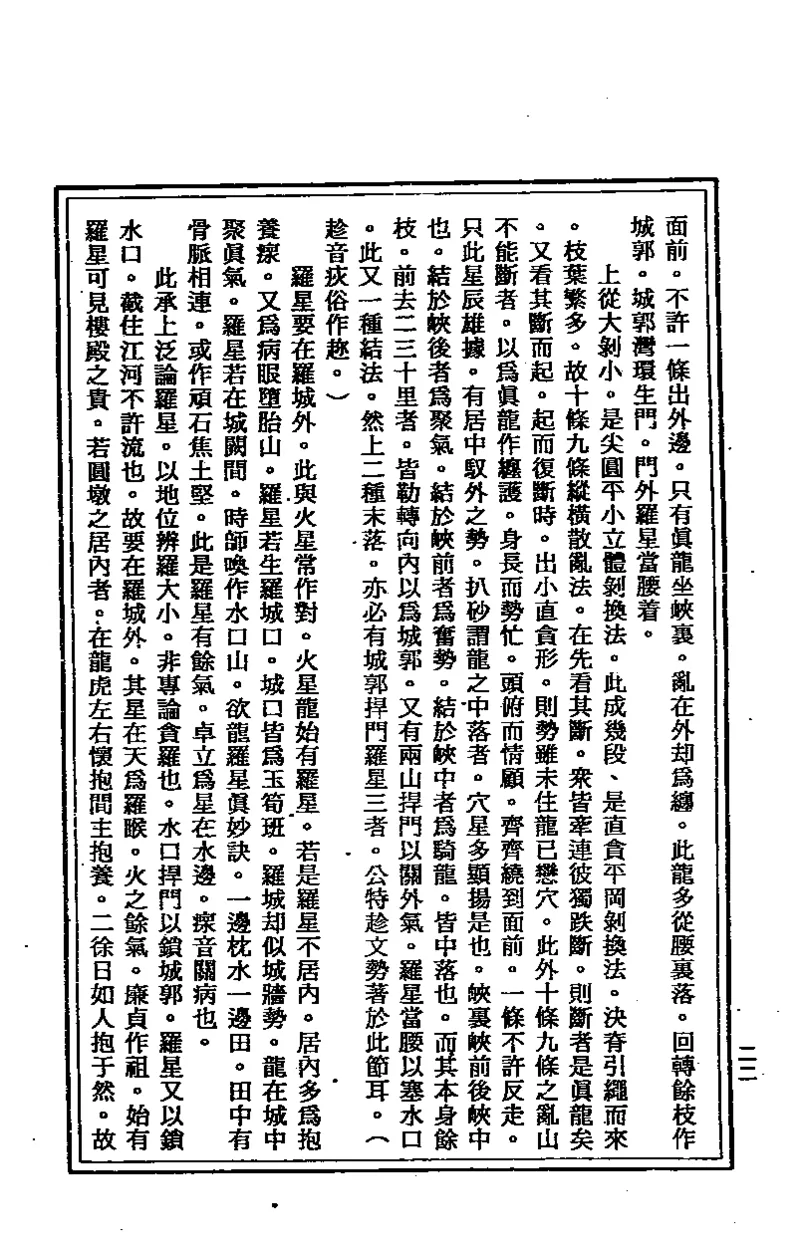 面前。不許一條出外邊。只有眞龍坐峽裏。亂在外却爲纏。此龍多從腰裏落。回轉餘枝作
城郭。城郭灣環生門。門外羅星當腰着。
上從大剝小。是尖圓平小立體剝換法。此成幾段、是直貪平岡剝換法。決脊引繩而來
。枝葉繁多。故十條九條縱橫散亂法。在先看其斷。衆皆牽連彼獨跌斷。則斷者是眞龍矣
。又看其斷而起。起而復斷時。出小直貪形。則勢雖未住龍已戀穴。此外十條九條之亂山
不能斷者。以爲眞龍作纏護。身長而勢忙。頭俯而情顧。齊齊繞到面前。一條不許反走。
只此星辰雄據。有居中馭外之勢。扒砂謂龍之中落者。穴星多顯揚是也。峽裏峽前後峽中
也。結於峽後者爲聚氣。結於峽前者爲奮勢。結於峽中者爲騎龍。皆中落也。而其本身餘
枝。前去二三十里者。皆勒轉向內以爲城郭。又有兩山捍門以關外氣。羅星當腰以塞水口
。此又一種結法。然上二種末落。亦必有城郭捍門羅星三者。公特趁文勢著於此節耳。（
趁音疢俗作趂。）
羅星要在羅城外。此與火星常作對。火星龍始有羅星。若是羅星不居內。居內多爲抱
養瘝。又爲病眼墮胎山。羅星若生羅城口。城口皆爲玉筍班。羅城却似城牆勢。龍在城中
聚眞氣。羅星若在城闕間。時師喚作水口山。欲龍羅星眞妙訣。一邊枕水一邊田。田中有
骨脈相連。或作頑石焦土堅。此是羅星有餘氣。卓立爲星在水邊。瘝音關病也。
此承上泛論羅星。以地位辨羅大小。非專論貪羅也。水口捍門以鎖城郭。羅星又以鎖
水口。截住江河不許流也。故要在羅城外。其星在天爲羅睺。火之餘氣。廉貞作祖。始有
羅星可見樓殿之貴。若圓墩之居內者。在龍虎左右懷抱間主抱養。二徐日如人抱子然。故
二二